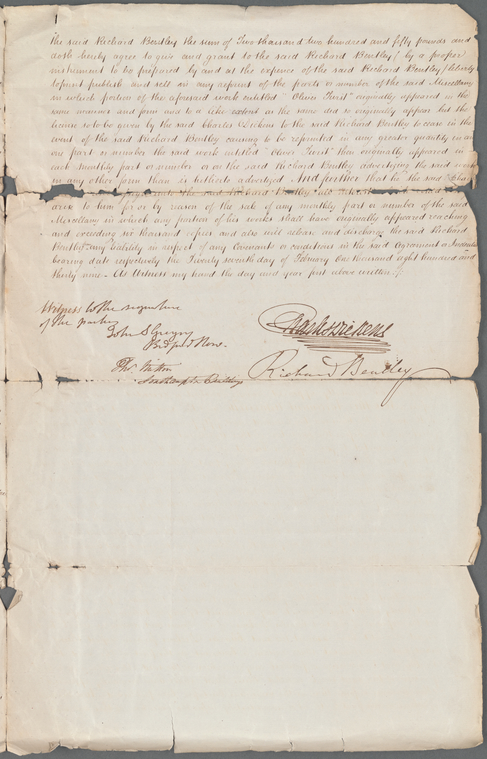 the said Richard Bentley the sum of Two thousand two hundred and fifty pounds and
doth hereby agree to give and grant to the said Richard Bentley (by a proper
instrument to be prepared by and at the expence of the said Richard Bentley) liberty
to print publish and sell in any reprint of the parts or number of the said Miscellany
in which portion of the aforesaid work entitled "Oliver Twist" originally appeared in the
same manner and form and to a like extent as the same did so originally appear but the
license to be given by the said Charles Dickens to the said Richard Bentley to cease in the
event of the said Richard Bentley causing to be reprinted in any greater quantity in any
one part or number the said work entitled "Oliver Twist" than originally appeared in
each monthly part or number or on the said Richard Bentley advertizing the said work
in any other form than is hitherto advertized And further that he the said Charles
the said Richard Bentley all
due to him for or by reason of the sale of any monthly part or number of the said
Miscellany in which any portion of his works shall have originally appeared reaching
and exceeding six thousand copies and also will release and discharge the said Richard
Bentley any liability in respect of any Covenants or conditions in the said agreement
bearing date respectively the Twenty seventh day of February One thousand eight hundred and
thirty nine – As Witness my hand the day and year first above written
Witness to the signature
of the parties
John S Gregory
Bedford Row.
Charles Dickens
Thos Mitton
Southampton Buildings
Richard Bentley